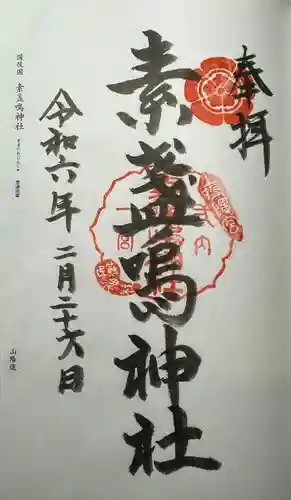 奉拝
素盞鳴神社
令和六年二月二十六日
備後國 素盞嗚神社
山陽道